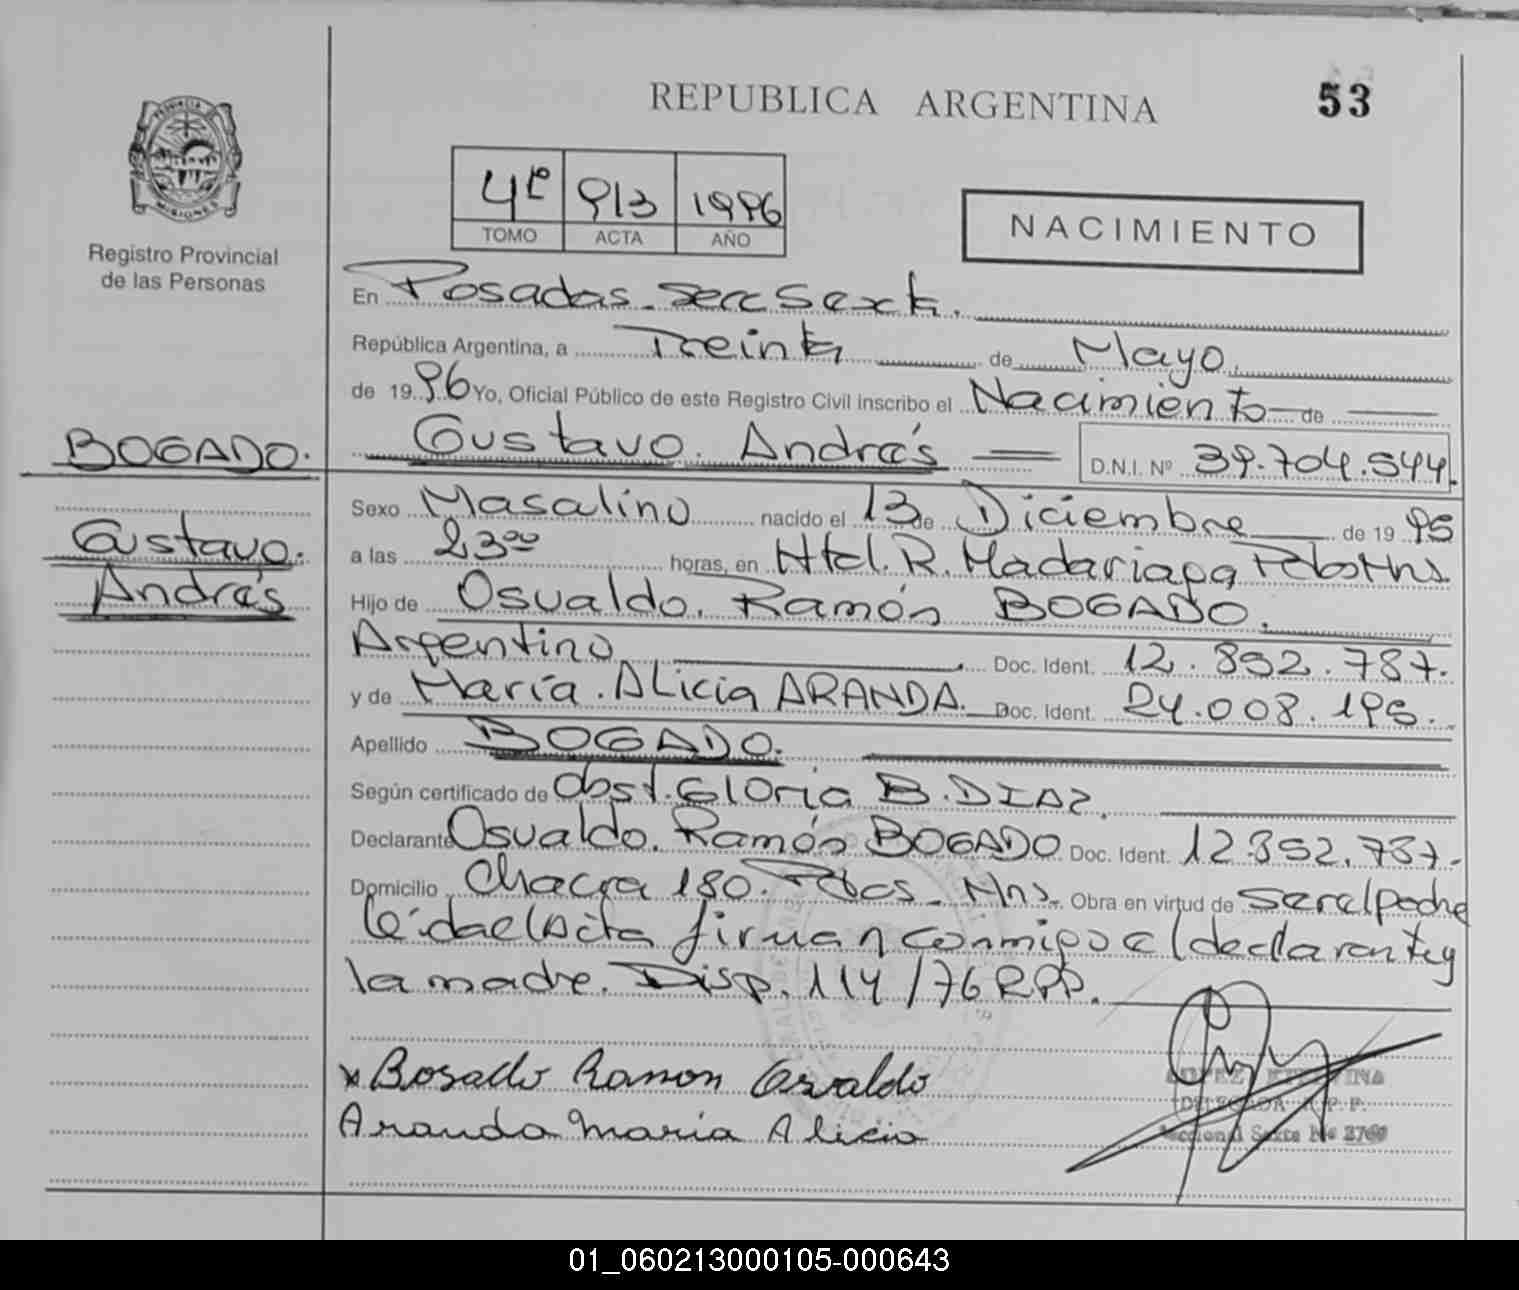 REPUBLICA ARGENTINA
53
PROVINCIA
MISIONES
Registro Provincial
de las Personas
4º 913 1996
TOMO ACTA AÑO
NACIMIENTO
En Posadas - Secc Sexta.
República Argentina, a Treinta de Mayo.
de 1996 Yo, Oficial Público de este Registro Civil inscribo el Nacimiento de
BOGADO.
Gustavo. Andrés
D.N.I. Nº 39.704.544.
Gustavo.
Andrés
Sexo Masculino nacido el 13 de Diciembre de 19 95
a las 23 00 horas, en Htal. R. Madariaga Pdas Mns.
Hijo de Osvaldo. Ramón BOGADO.
Argentino Doc. Ident. 12.892.787.
y de María. Alicia ARANDA. Doc. Ident. 24.008.195.
Apellido BOGADO.
Según certificado de Obst. Gloria B. DIAZ.
Declarante Osvaldo. Ramón BOGADO Doc. Ident. 12.892.787.-
Domicilio Chacra 180. Pdas. Mns. Obra en virtud de ser el padre
leída el Acta firman conmigo el declarante y
la madre. Disp. 114/76 RPP.
x Bogado Ramon Osvaldo
Aranda Maria Alicia
LOPEZ
DELEGADA R.P.P.
Seccional Sexta
01_060213000105-000643